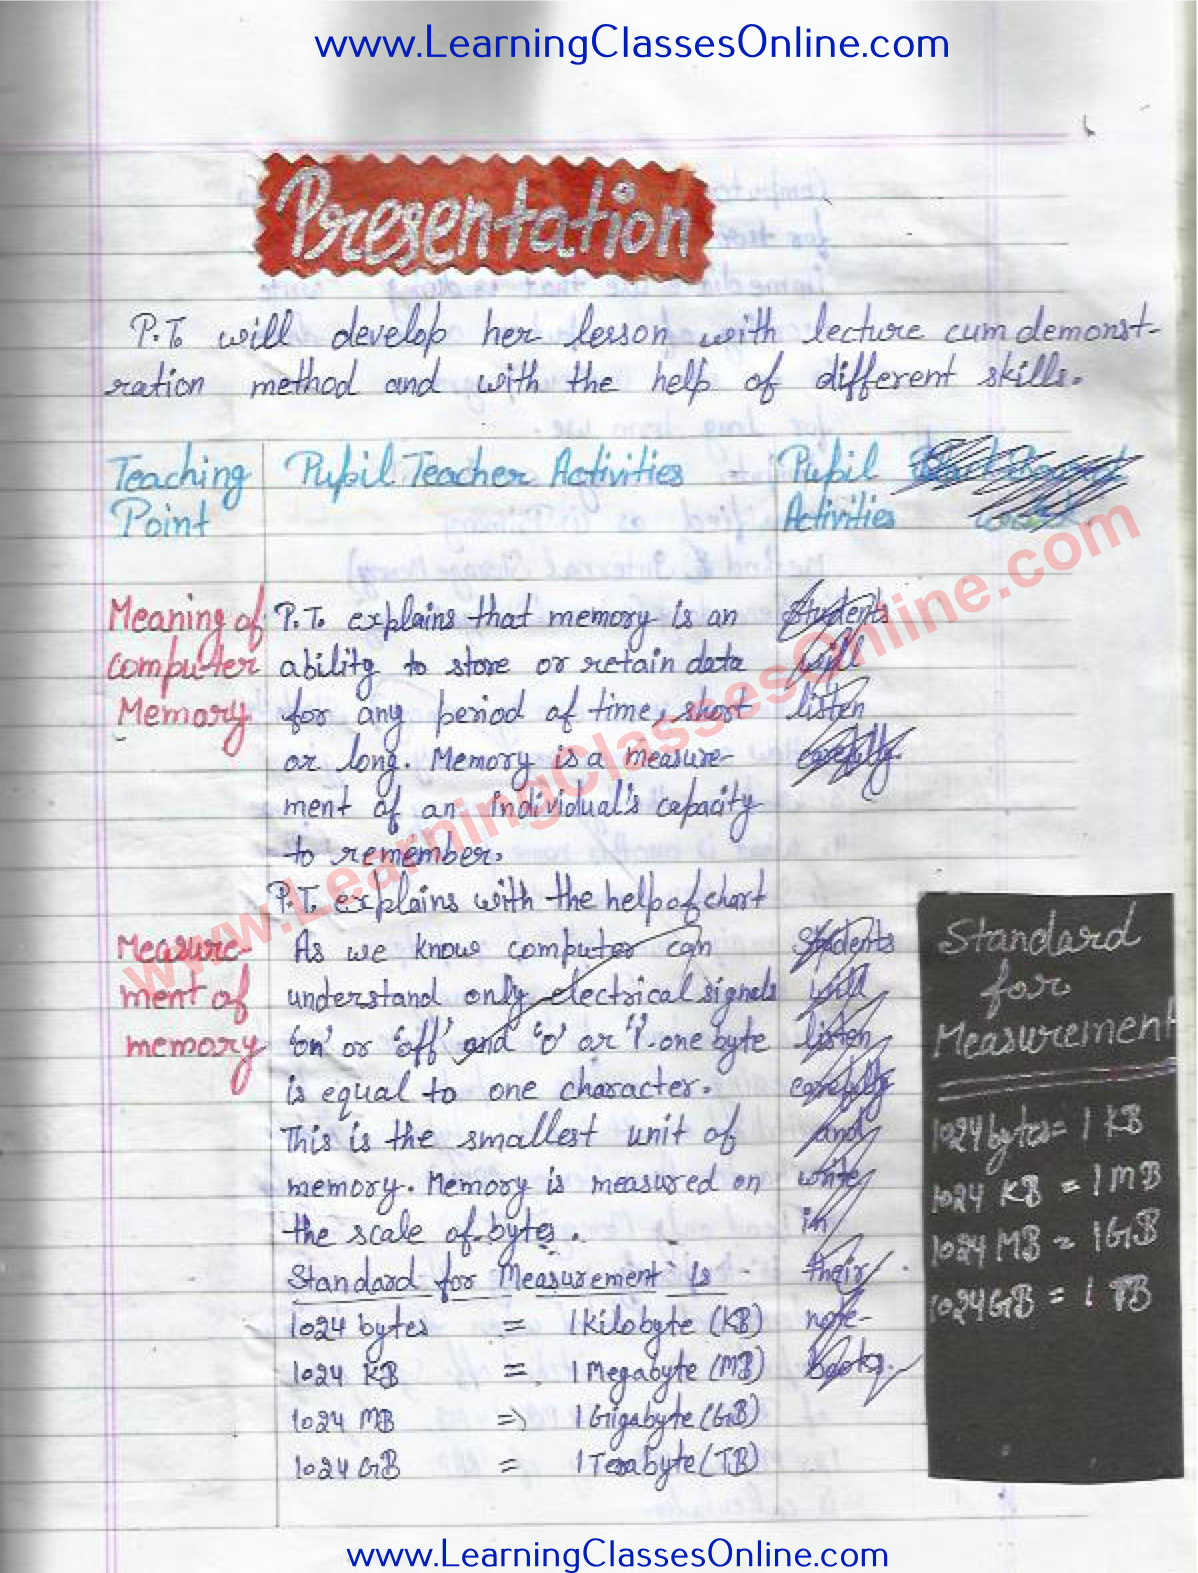 www.LearningClassesOnline.com
Presentation
P.T. will develop her lesson with lecture cum demonst-
ration method and with the help of different skills.
Teaching Point
Pupil Teacher Activities
Pupil Activities
Meaning of
computer
Memory
P.T. explains that memory is an
ability to store or retain data
for any period of time, short
or long. Memory is a measure-
ment of an individual's capacity
to remember.
Students
will
listen
carefully.
P.T. explains with the help of chart
Measure-
ment of
memory
As we know computer can
understand only electrical signals
'on' or 'off' and '0' or '1'. one byte
is equal to one character.
This is the smallest unit of
memory. Memory is measured on
the scale of bytes.
Standard for Measurement is -
1024 bytes = 1 Kilobyte (KB)
1024 KB = 1 Megabyte (MB)
1024 MB => 1 Gigabyte (GB)
1024 GB = 1 Terabyte (TB)
Students
will
listen
carefully
and
write
in
their
note-
books.
Standard
for
Measurement
1024 bytes = 1 KB
1024 KB = 1 MB
1024 MB = 1 GB
1024 GB = 1 TB
www.LearningClassesOnline.com
www.LearningClassesOnline.com